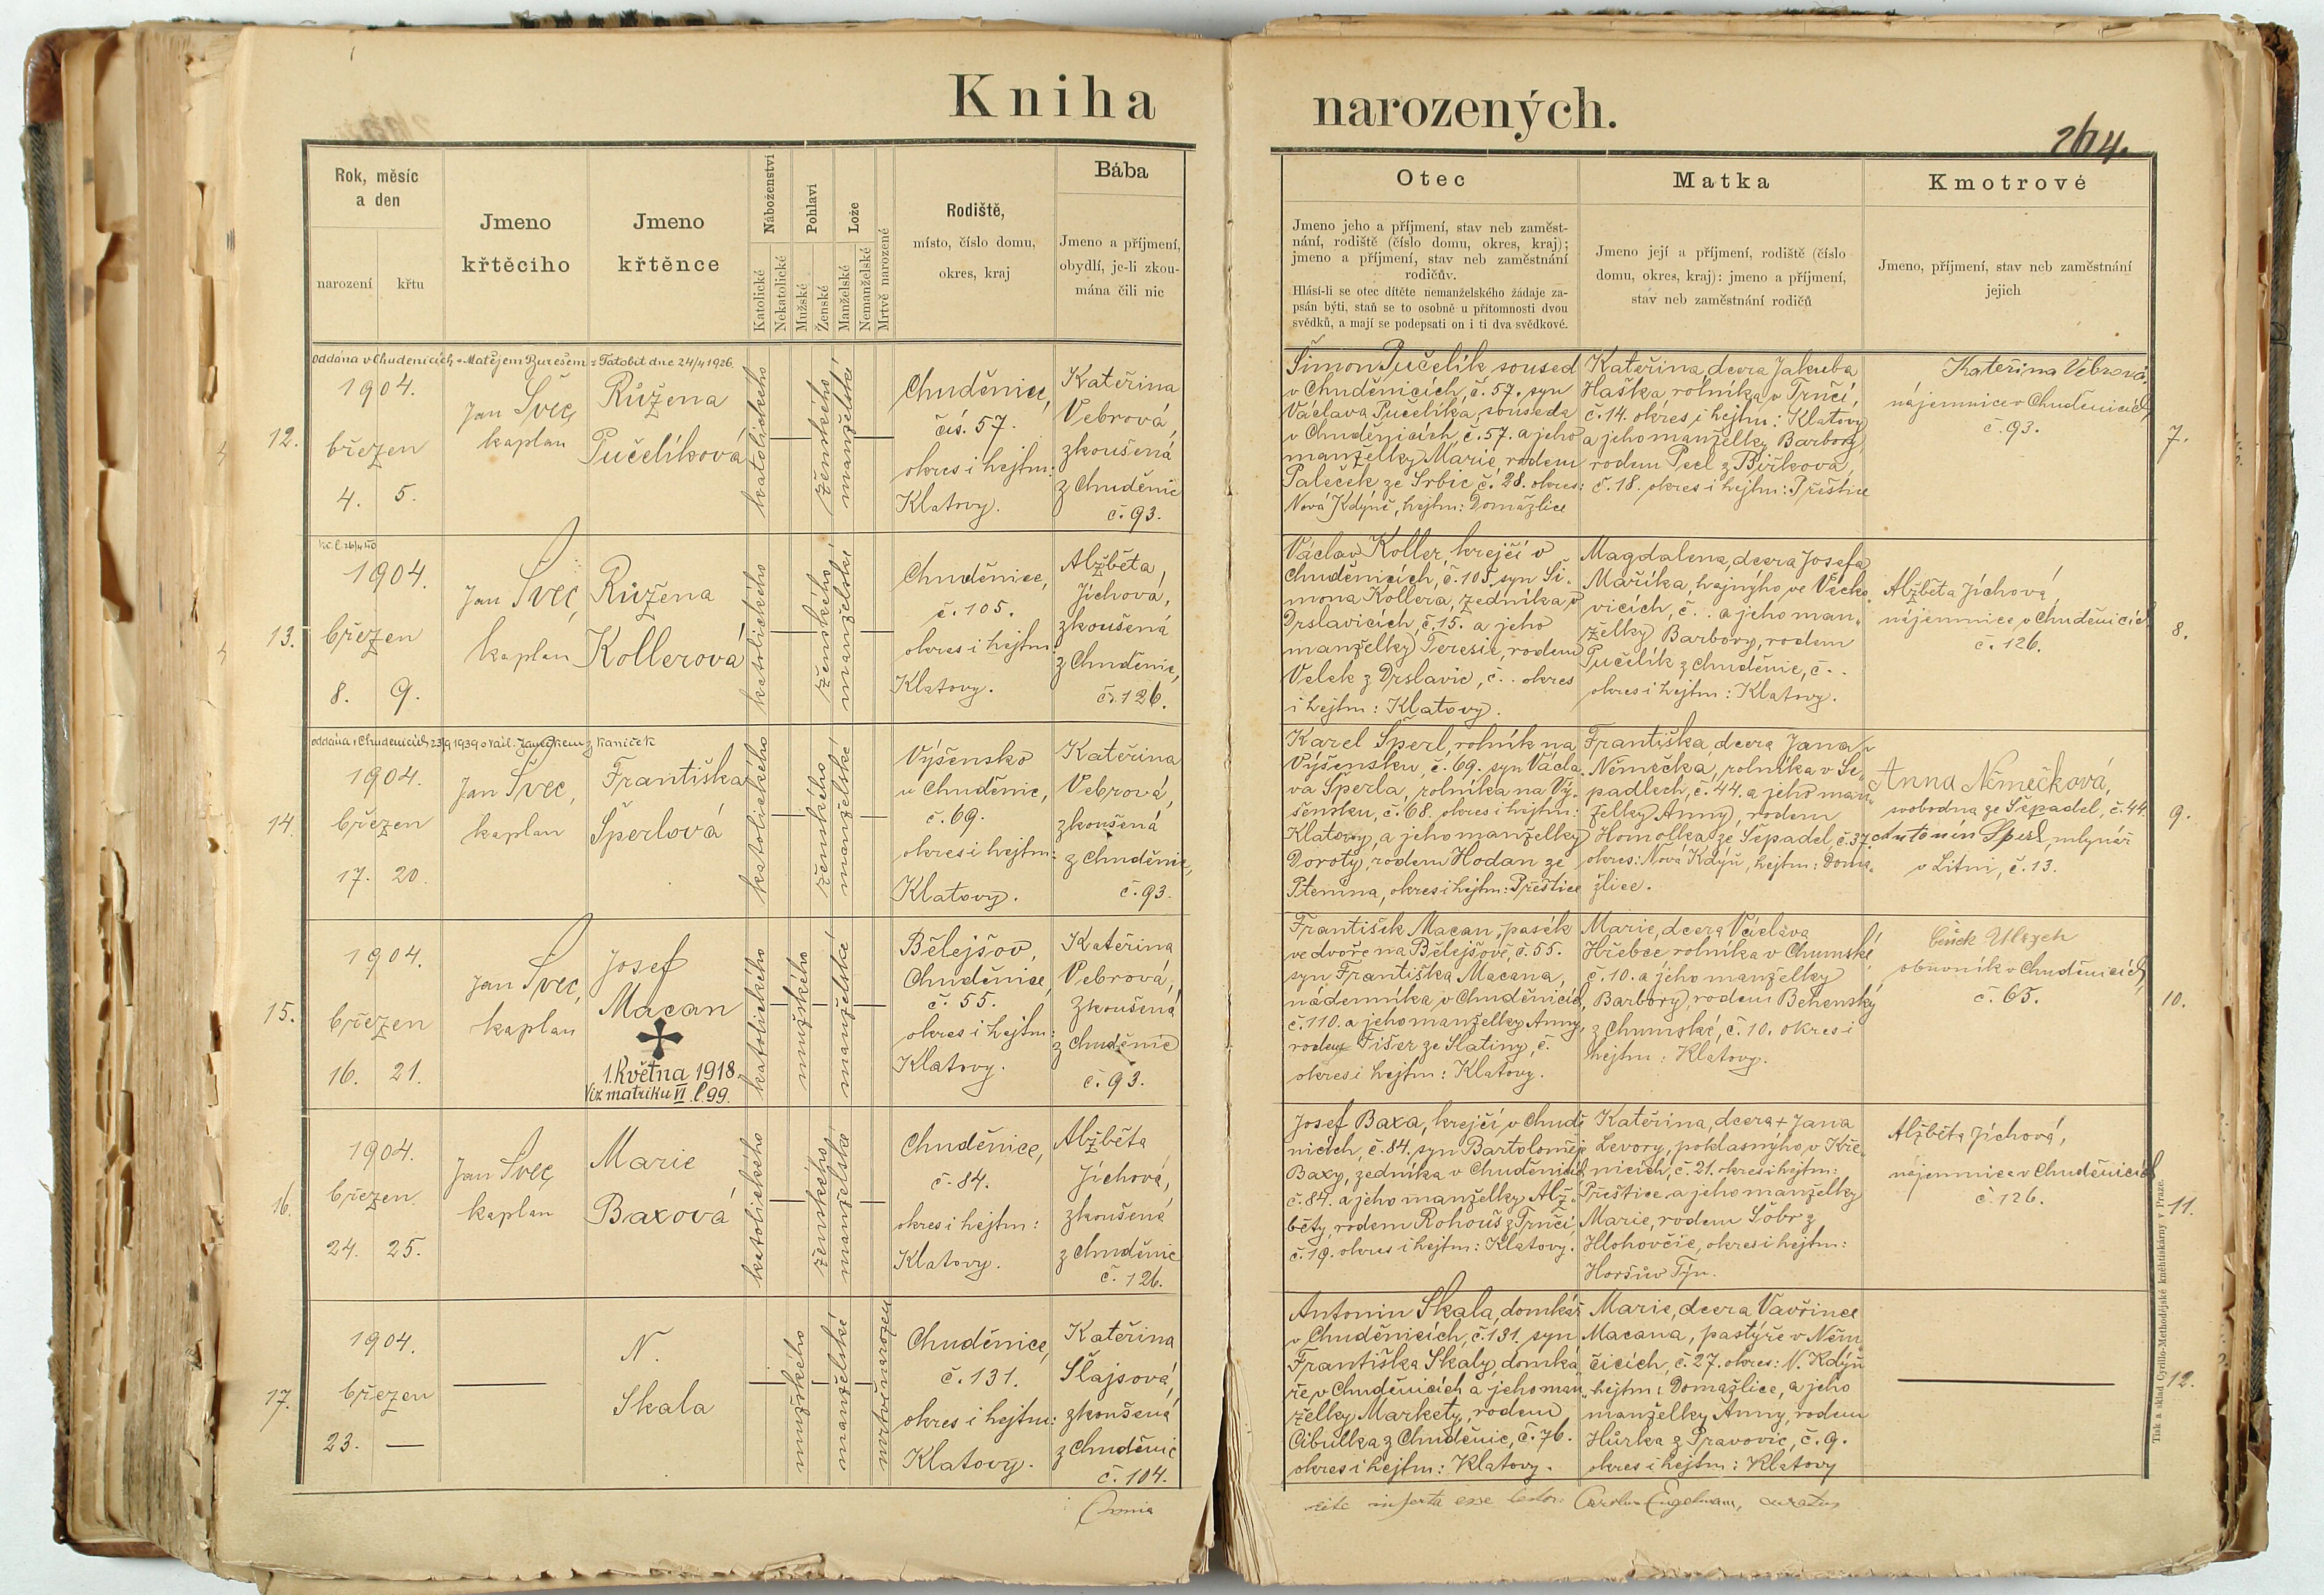 Kniha narozených.
264.
Rok, měsíc
a den
narození
křtu
Jmeno
křtěcího
Jmeno
křtěnce
Náboženství
Katolické
Nekatolické
Pohlaví
Mužské
Ženské
Lože
Manželské
Nemanželské
Mrtvě narozené
Rodiště,
místo, číslo domu,
okres, kraj
Bába
Jmeno a příjmení,
obydlí, je-li zkou-
mána čili nic
Otec
Jmeno jeho a příjmení, stav neb zaměst-
nání, rodiště (číslo domu, okres, kraj);
jmeno a příjmení, stav neb zaměstnání
rodičův.
Hlásí-li se otec dítěte nemanželského žádaje za-
psán býti, staň se to osobně u přítomnosti dvou
svědků, a mají se podepsati on i ti dva svědkové.
Matka
Jmeno její a příjmení, rodiště (číslo
domu, okres, kraj): jmeno a příjmení,
stav neb zaměstnání rodičů
Kmotrové
Jmeno, příjmení, stav neb zaměstnání
jejich
12.
Oddána v Chudenicích s Matějem Burešem z Tatobit dne 24/4 1926.
1904.
březen
4. 5.
Jan Švec,
kaplan
Růžena
Pučelíková
katolického
ženského
manželské
Chuděnice,
čís. 57.
okres i hejtm:
Klatovy.
Kateřina
Vebrová,
zkoušená
z Chuděnic
č. 93.
Šimon Pučelík soused
v Chuděnicích, č. 57. syn
Václava Pučelíka, souseda
v Chuděnicích, č. 57. a jeho
manželky Marie, rodem
Paleček ze Srbic č. 28. okres:
Nová Kdýně, hejtm: Domažlice
Kateřina, dcera Jakuba
Haška, rolníka v Trnčí,
č. 14. okres i hejtm: Klatovy
a jeho manželky Barbory,
rodem Pecl z Biřkova,
č. 18. okres i hejtm: Přeštice
Kateřina Vebrová,
nájemnice v Chuděnicích,
č. 93.
7.
13.
1904.
březen
8. 9.
Jan Švec,
kaplan
Růžena
Kollerová
katolického
ženského
manželské
Chuděnice,
č. 105.
okres i hejtm:
Klatovy.
Alžběta,
Jíchová,
zkoušená
z Chuděnic,
č. 126.
Václav Koller, krejčí v
Chuděnicích, č. 105. syn Ši-
mona Kollera, zedníka v
Drslavicích, č. 15. a jeho
manželky Teresie, rodem
Velek z Drslavic, č. . okres
i hejtm: Klatovy.
Magdalena, dcera Josefa
Maříka, hajného ve
vicích, č. . a jeho man-
želky Barbory, rodem
Pučelík z Chuděnic, č. . .
okres i hejtm: Klatovy.
Alžběta Jíchová,
nájemnice v Chuděnicích
č. 126.
8.
14.
oddána v Chudenicích 23/9 1939 s
1904.
březen
17. 20.
Jan Švec,
kaplan
Františka
Šperlová
katolického
ženského
manželské
Výšensko
u Chuděnic,
č. 69.
okres i hejtm:
Klatovy.
Kateřina
Vebrová,
zkoušená
z Chuděnic,
č. 93.
Karel Šperl, rolník na
Výšensku, č. 69. syn Václa-
va Šperla, rolníka na Vý-
šensku, č. 68. okres i hejtm:
Klatovy, a jeho manželky
Doroty, rodem Hodan ze
Ptenína, okres i hejtm: Přeštice
Františka, dcera Jana
Němečka, rolníka v Še-
padlech, č. 44. a jeho man-
želky Anny, rodem
Homolka ze Šepadel, č. 37.
okres: Nová Kdýň, hejtm: Doma-
žlice.
Anna Němečková,
svobodna ze Šepadel, č. 44.
Antonín Šperl, mlynář
v Litni, č. 13.
9.
15.
1904.
březen
16. 21.
Jan Švec,
kaplan
Josef
Macan
1. Května 1918.
Viz matriku VI. l. 99.
katolického
mužského
manželské
Bělejšov,
Chuděnice,
č. 55.
okres i hejtm:
Klatovy.
Kateřina
Vebrová,
zkoušená
z Chuděnic
č. 93.
František Macan, pasák
ve dvoře na Bělejšově, č. 55.
syn Františka Macana,
nádenníka v Chuděnicích,
č. 110. a jeho manželky Anny,
rodem Fišer ze Slatiny, č.
okres i hejtm: Klatovy.
Marie, dcera Václava
Hřebce rolníka v Chumské,
č. 10. a jeho manželky
Barbory, rodem Behenský
z Chumské, č. 10. okres i
hejtm: Klatovy.
Čeněk Ulrych
obuvník v Chuděnicích,
č. 65.
10.
16.
1904.
březen
24. 25.
Jan Švec,
kaplan
Marie
Baxová
katolického
ženského
manželské
Chuděnice,
č. 84.
okres i hejtm:
Klatovy.
Alžběta
Jíchová,
zkoušená
z Chuděnic
č. 126.
Josef Baxa, krejčí v Chudě-
nicích, č. 84. syn Bartoloměje
Baxy, zedníka v Chuděnicích,
č. 84. a jeho manželky Alž-
běty, rodem Rohouš z Trnčí,
č. 19. okres i hejtm: Klatovy.
Kateřina, dcera + Jana
Levory, poklasného, v Kře-
nicích, č. 21. okres i hejtm:
Přeštice, a jeho manželky
Marie, rodem Šobr z
Hlohovčic, okres i hejtm:
Horšův Týn.
Alžběta Jíchová,
nájemnice v Chuděnicích
č. 126.
11.
17.
1904.
březen
23. —
N.
Skala
mužského
manželské
mrtvě narozen
Chuděnice,
č. 131.
okres i hejtm:
Klatovy.
Kateřina
Šlajsová,
zkoušená
z Chuděnic
č. 104.
Antonín Skala, domkář
v Chuděnicích, č. 131. syn
Františka Skaly, domká-
ře v Chuděnicích a jeho man-
želky Markéty, rodem
Cibulka z Chuděnic, č. 76.
okres i hejtm: Klatovy.
Marie, dcera Vavřince
Macana, pastýře v Něm-
čicích, č. 27. okres: N. Kdýň
hejtm: Domažlice, a jeho
manželky Anny, rodem
Hůrka z Pravovic, č. 9.
okres i hejtm: Klatovy
12.
Omnia
rite inserta esse testor: Carolus Engelmann, curatus
Tisk a sklad Cyrillo-Methodějské knihtiskárny v Praze.